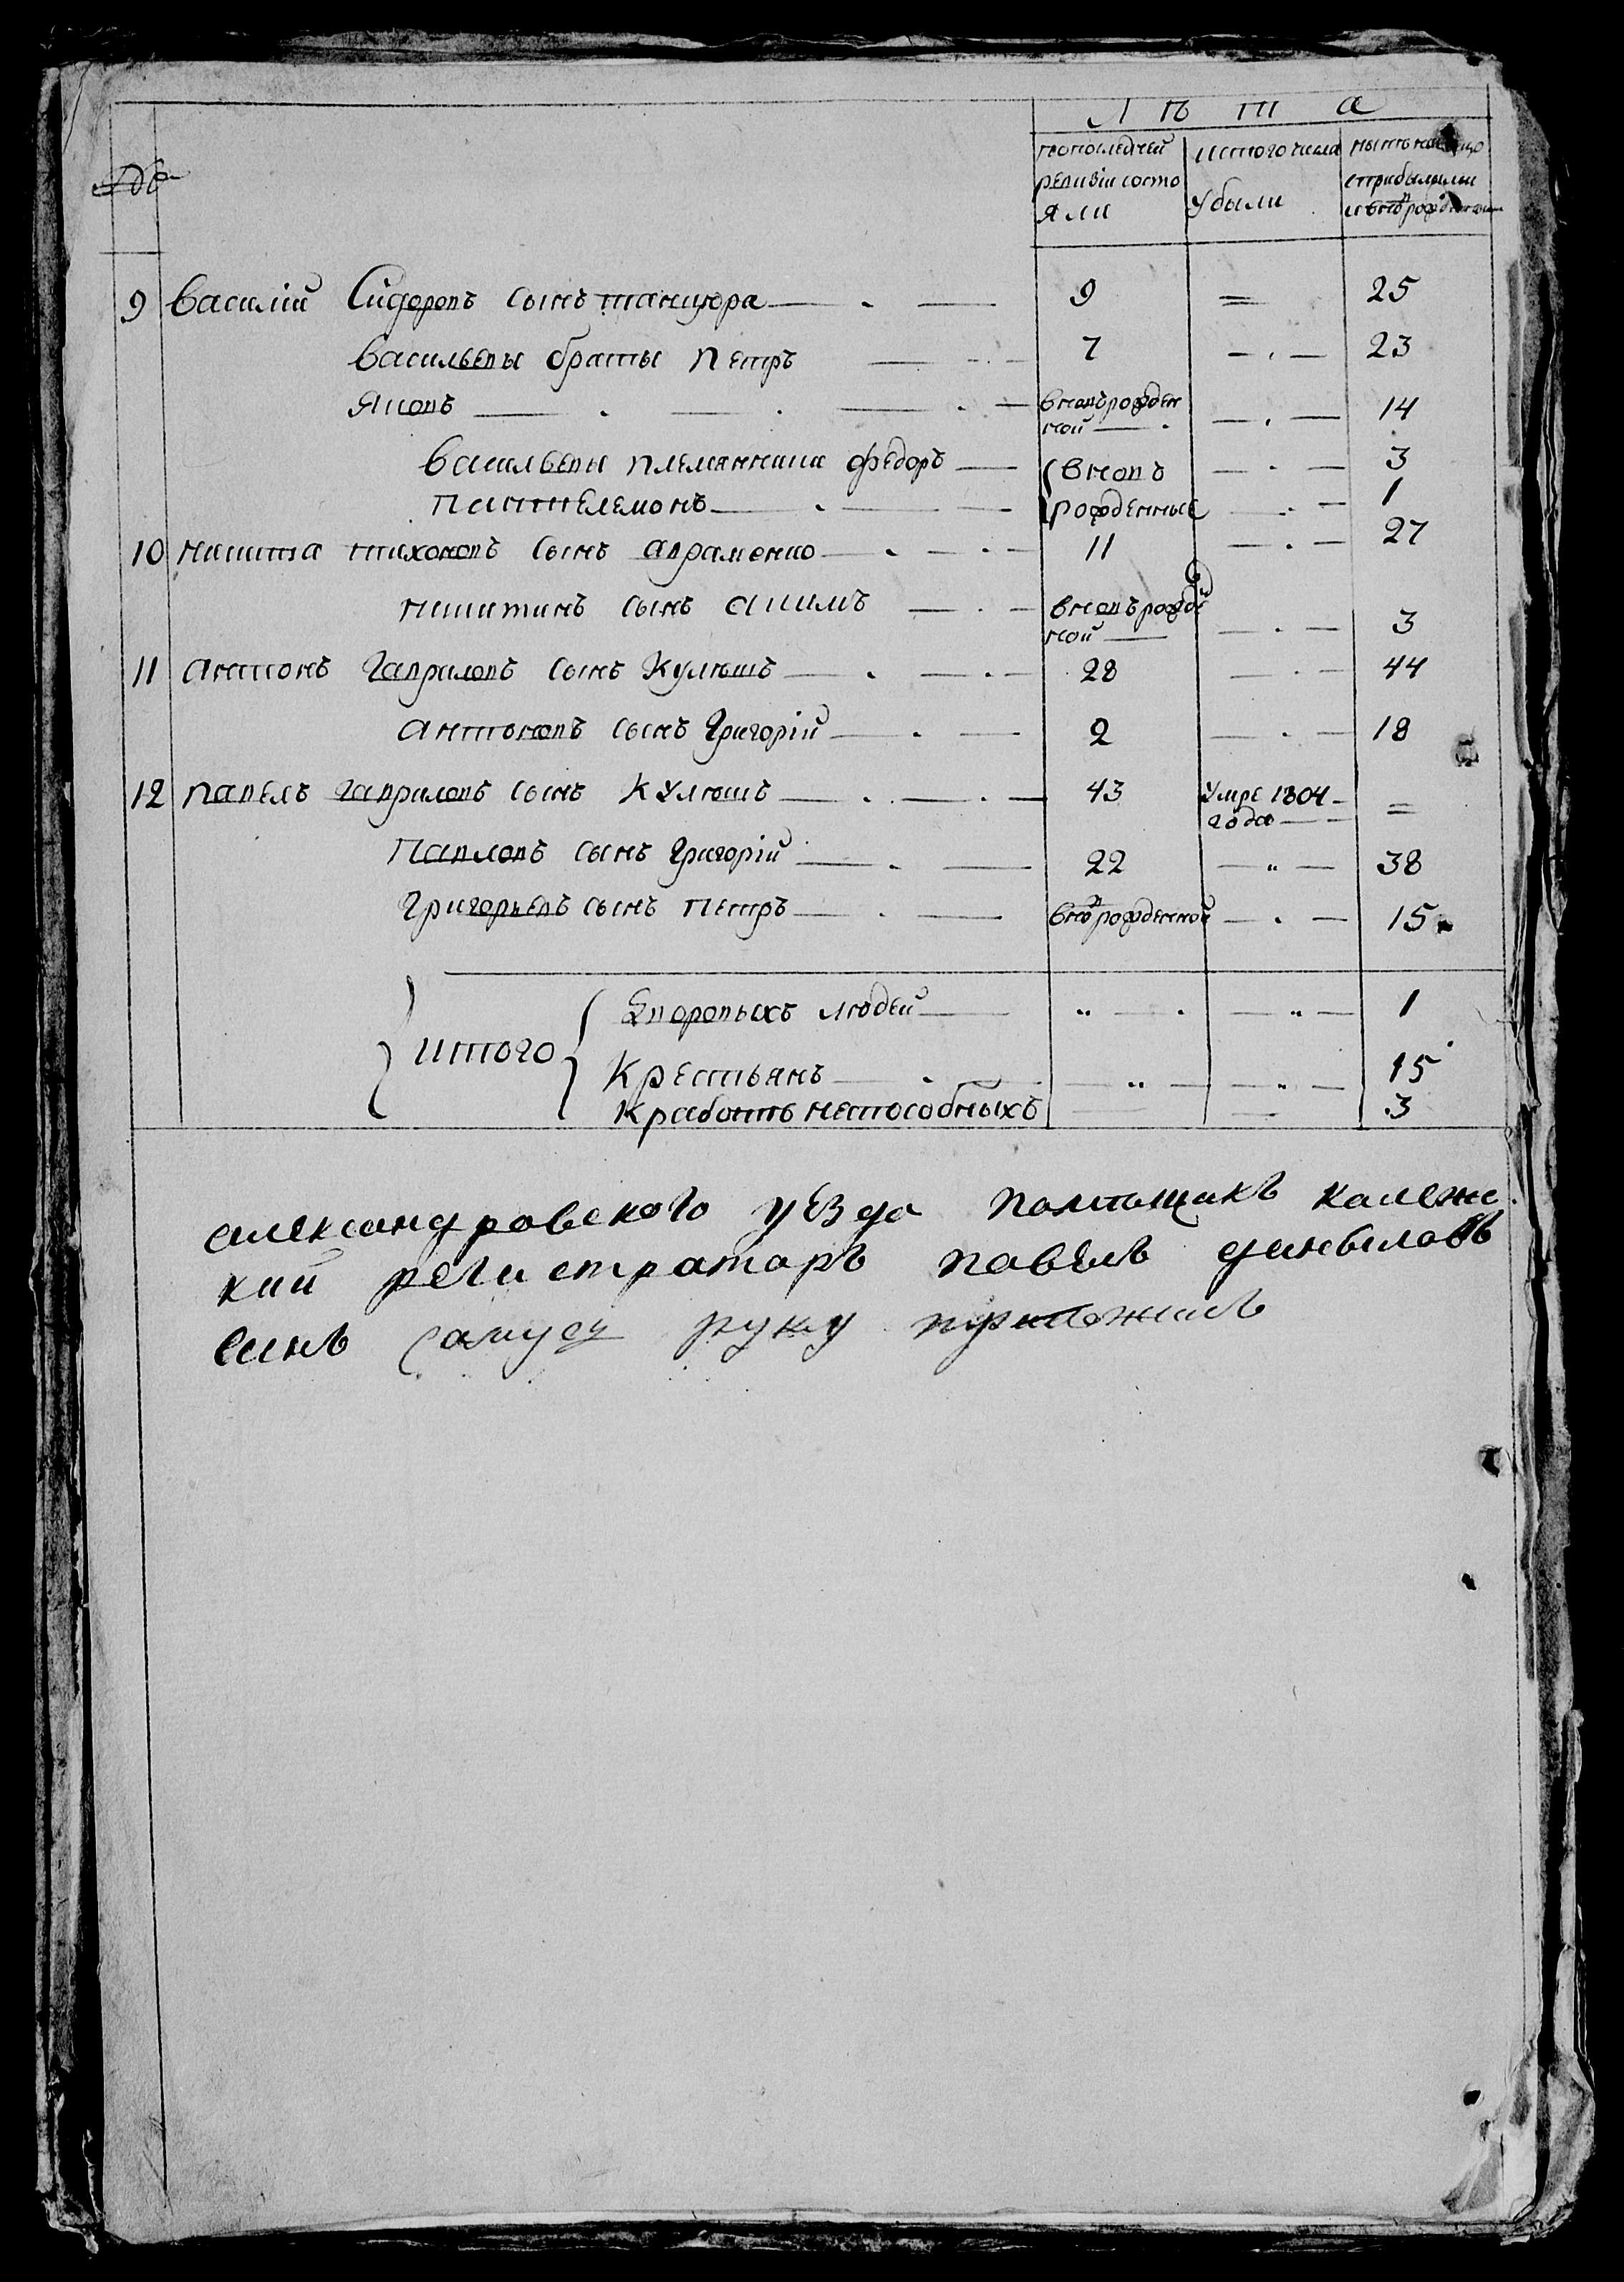 №
Лѣта
попоследней ревизіи состояли
истого числа убыли
ныне налицо сприбылыми и вновь рожденными
9 Василій Сидоровъ сынъ танцюра 9 = 25
Васильевы браты Петръ 7 — 23
Яковъ вновь рожденной — 14
Васильевы племянники Федоръ вновь — 3
Пантелемонъ рожденные — 1
10 Никита тихоновъ сынъ авраменко 11 — 27
Никитинъ сынъ акимъ вновь рожденной — 3
11 антонъ Гавриловъ сынъ Кулюшъ 28 — 44
антоновъ сынъ Григорій 2 — 18
12 Павелъ гавриловъ сынъ Кулюшъ 43 Умре 1804 года =
Павловъ сынъ Григорій 22 — 38
Григорьевъ сынъ Петръ вновь рожденной — 15
Итого
Дворовыхъ людей „ „ 1
Крестьянъ „ „ 15
К работе неспособныхъ — — 3
александровского уезда помпощикъ колежс
кий регистраторъ павелъ даниловъ
синъ руку приложилъ